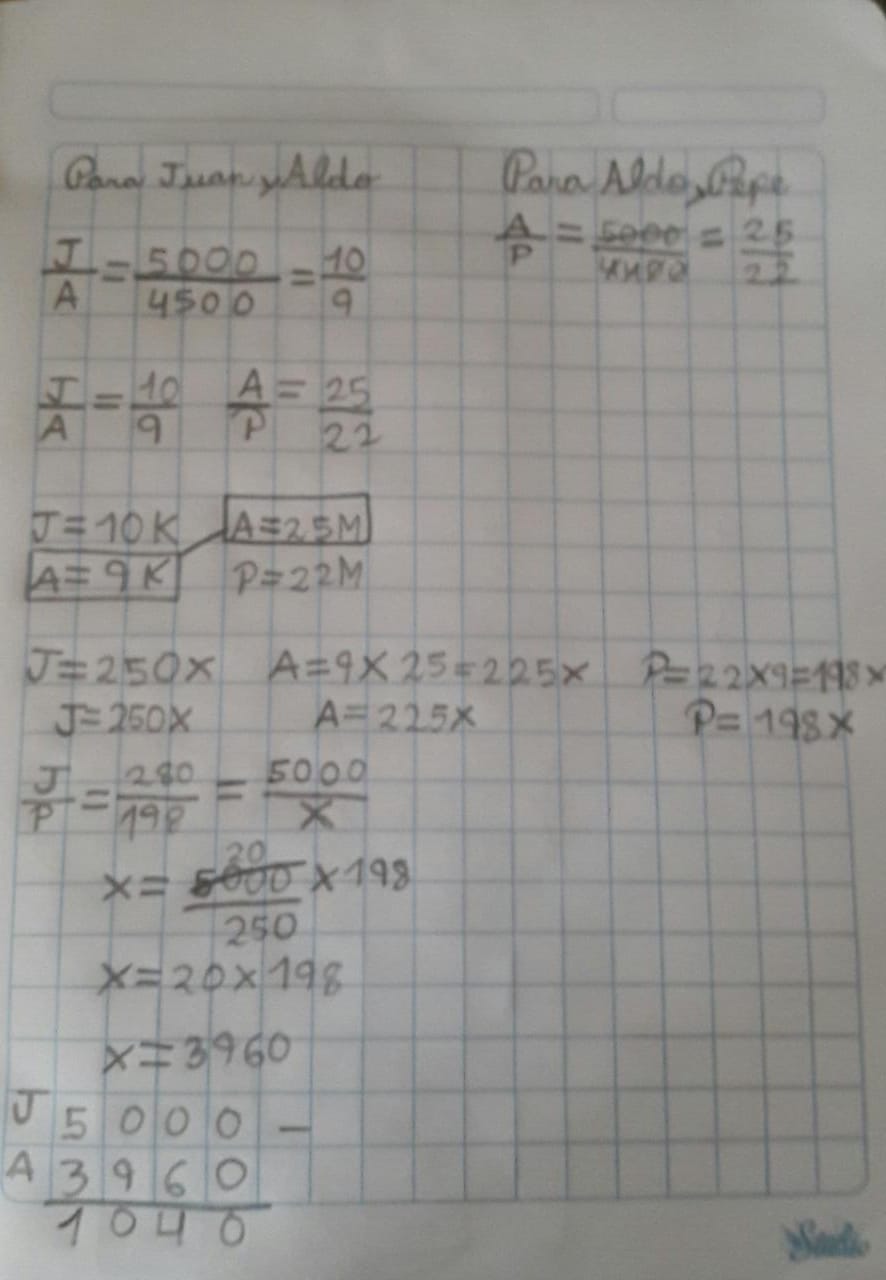 Para Juan y Aldo
J/A = 5000/4500 = 10/9
Para Aldo y Pepe
A/P = 5000/4400 = 25/22
J/A = 10/9 A/P = 25/22
J=10K A=25M
A=9K P=22M
J=250x A=9x25=225x P=22x9=198x
J=250x A=225x P=198x
J/P = 250/198 = 5000/x
20
x= 5000/250 x198
x=20x198
x=3960
J 5000 -
A 3960
1040